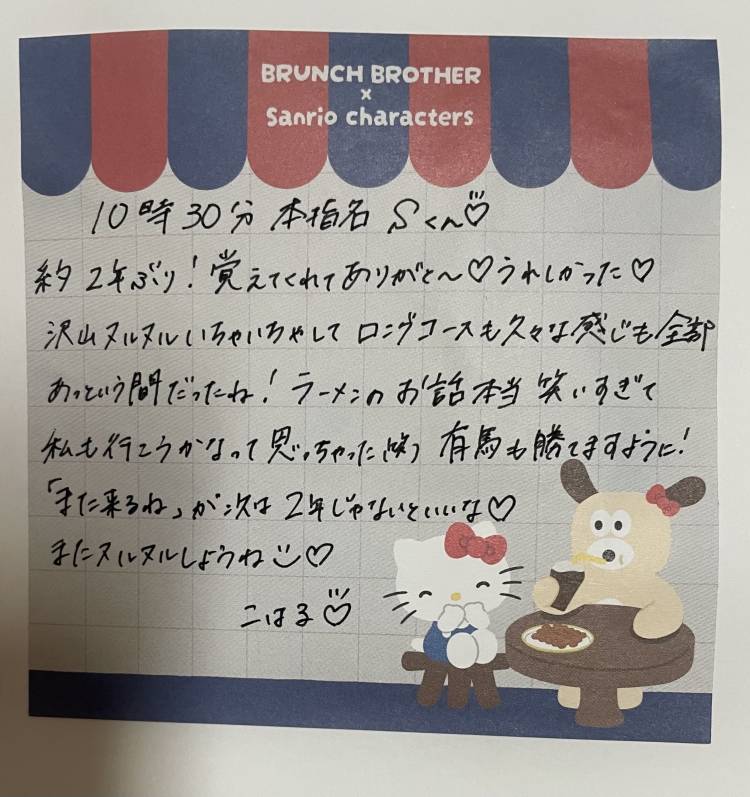 BRUNCH BROTHER
×
Sanrio characters
10時30分 本指名 Sくん♡
約2年ぶり!覚えてくれてありがと〜♡うれしかった♡
沢山ヌルヌルいちゃいちゃして ロングコースも久々な感じも全部
あっという間だったね!ラーメンのお話本当笑いすぎて
私も行こうかなって思っちゃった(笑) 有馬も勝てますように!
「また来るね」が次は2年じゃないといいな♡
またヌルヌルしようね☺♡
こはる♡